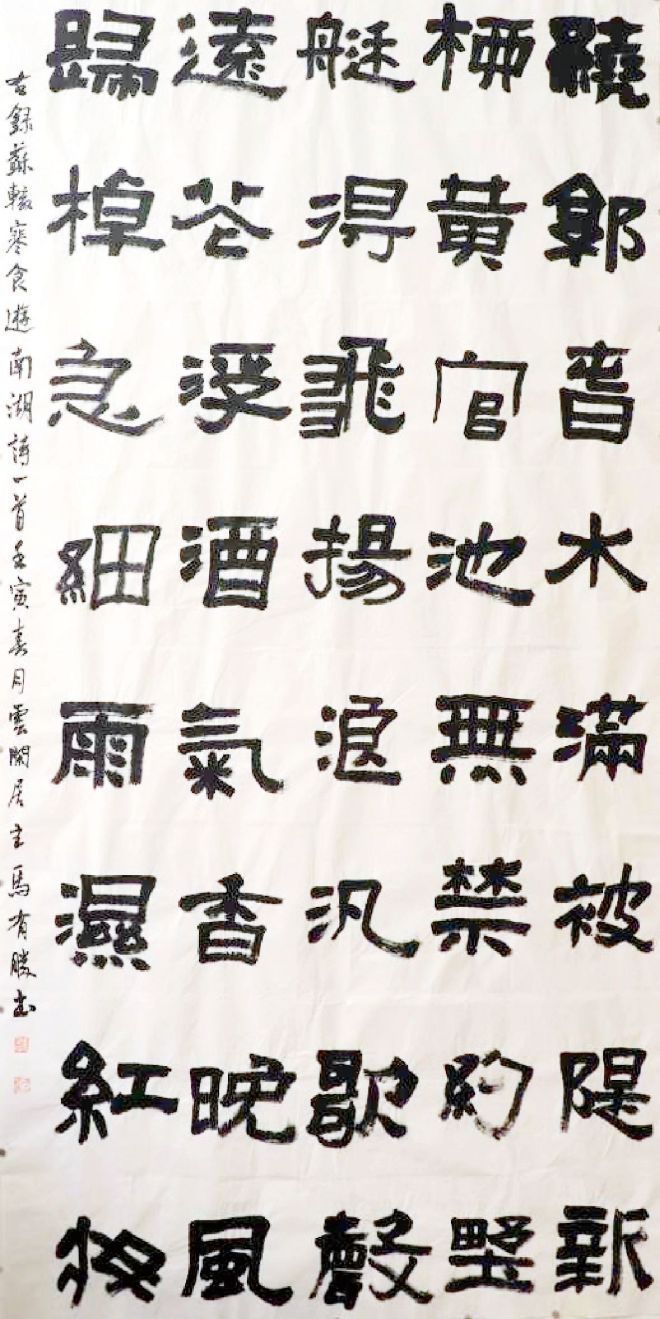 繞郭春水滿被隄新
柳黃官池無禁約野
艇得飛揚浪汎歌聲
遠花浮酒氣香晚風
歸棹急細雨濕紅妝
右録蘇轍寒食遊南湖詩一首壬寅春月雲閑居主馬有勝書